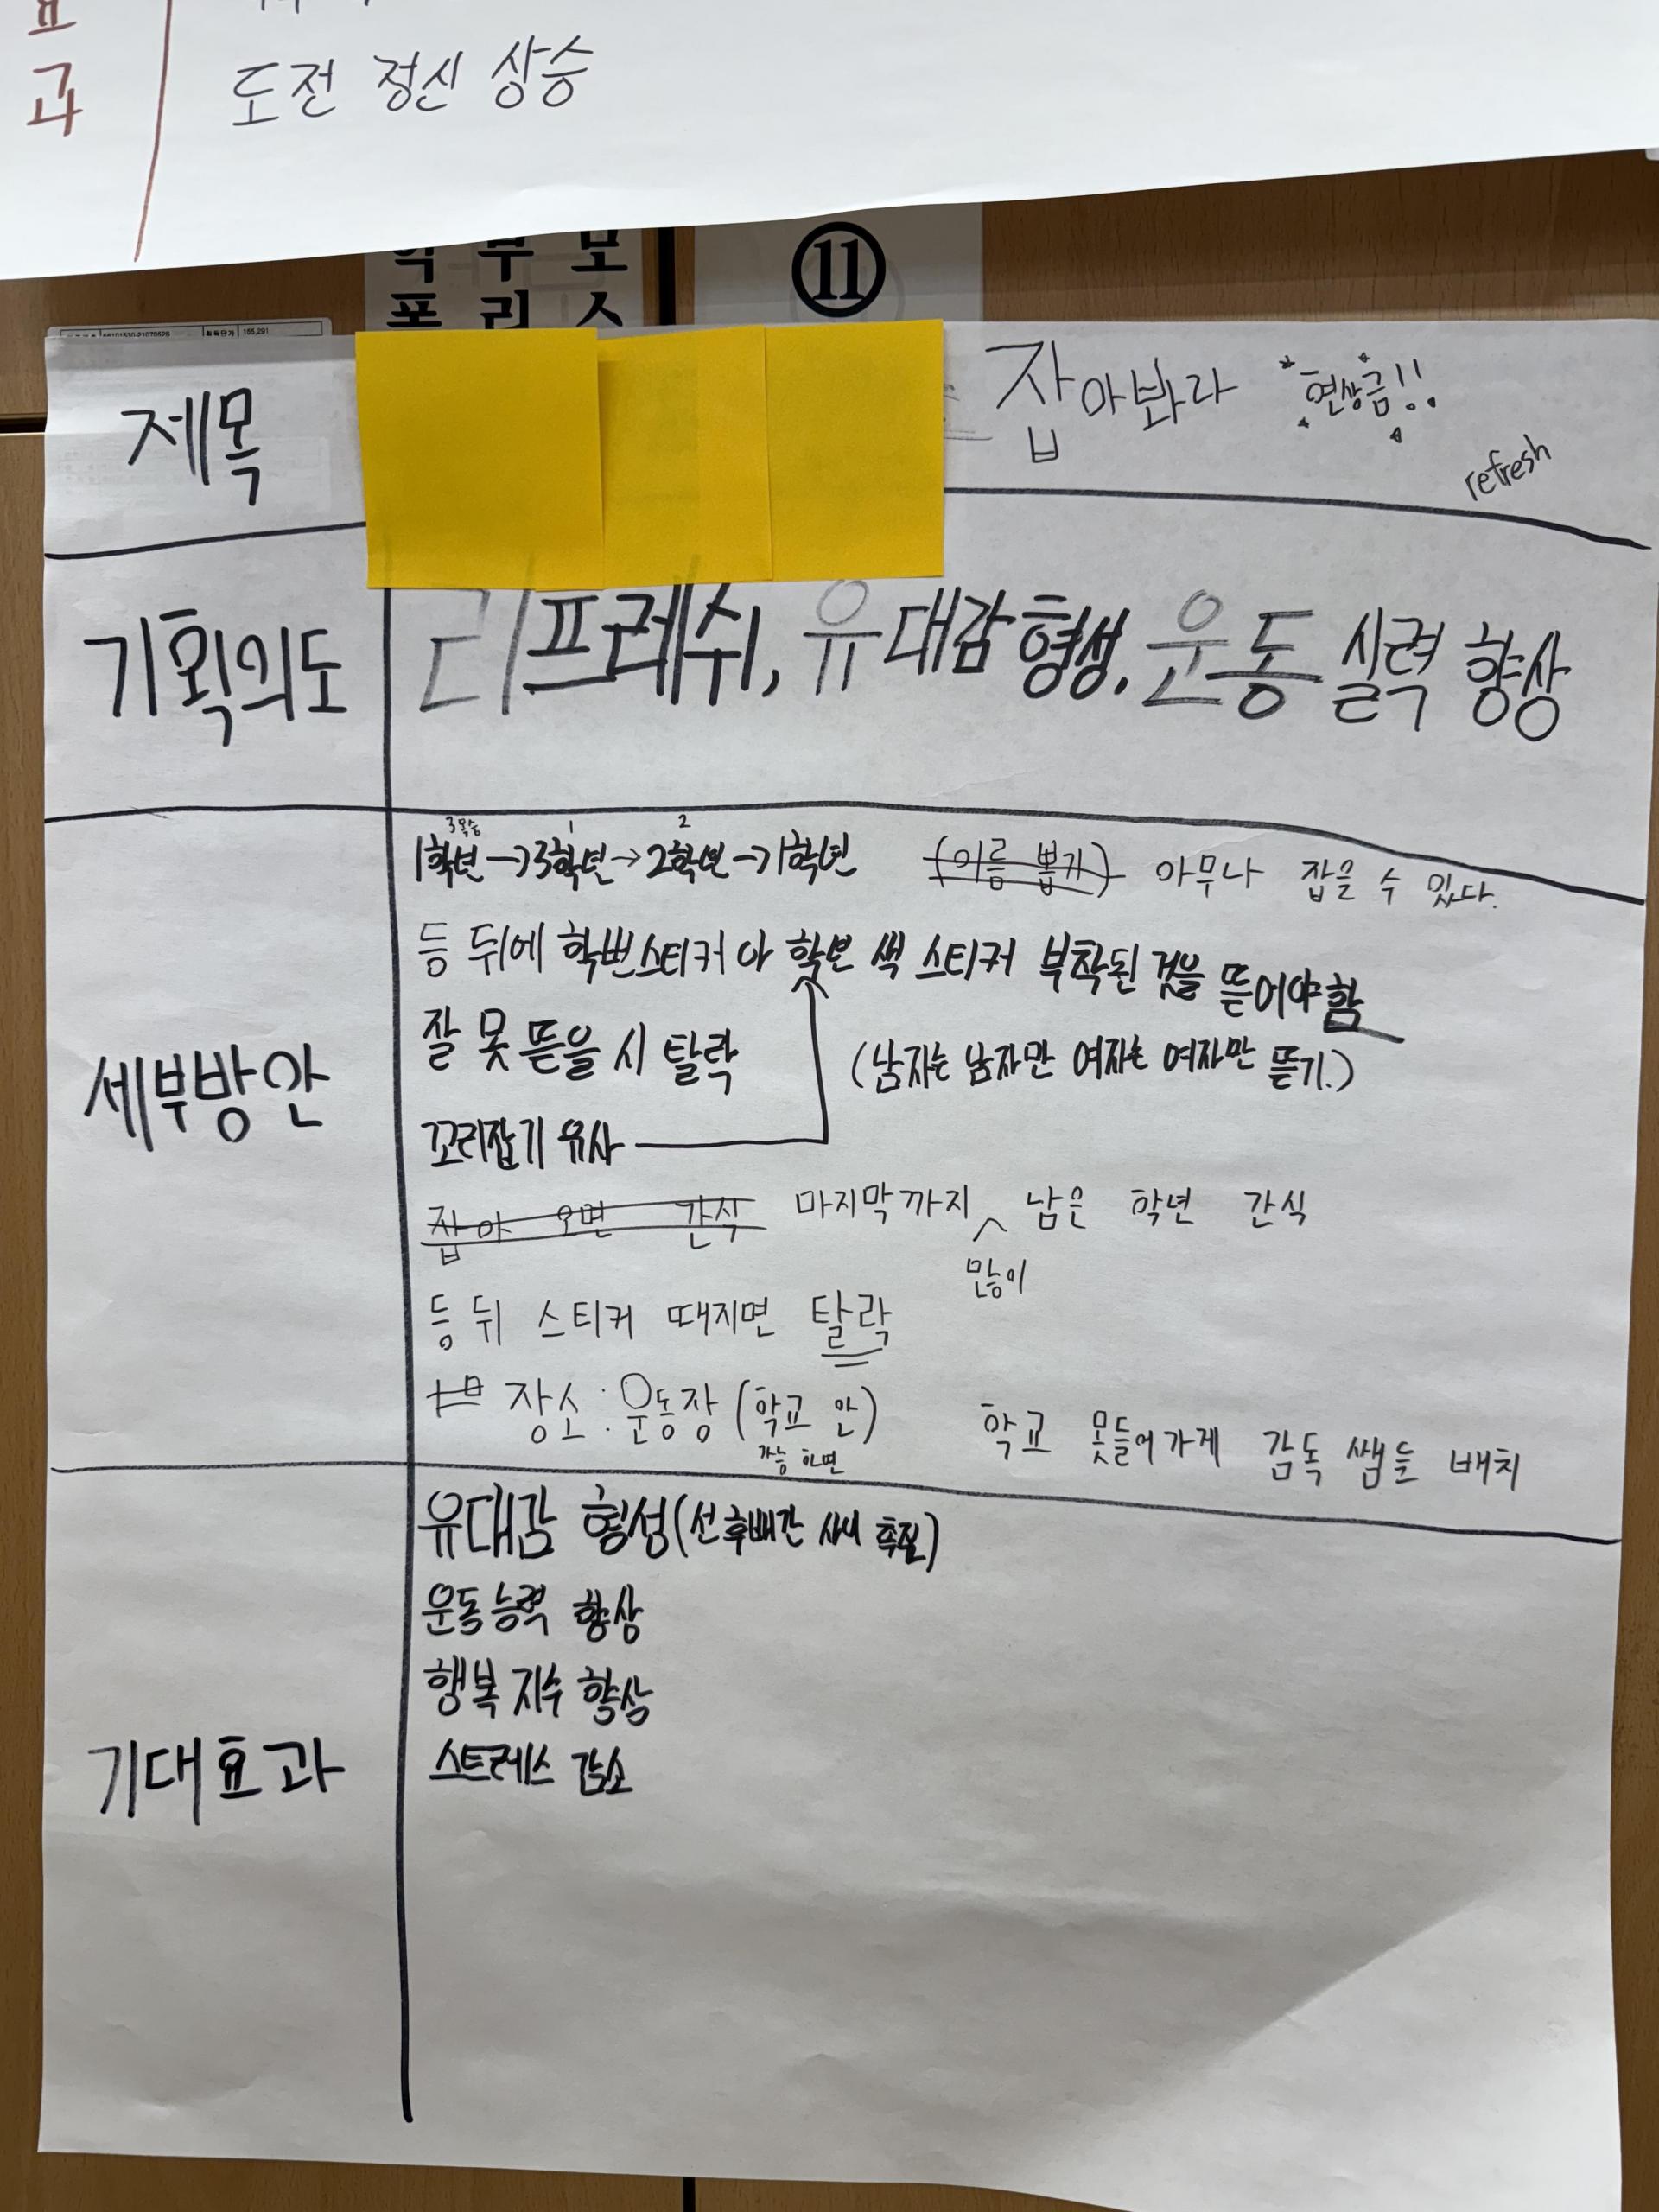 과
도전 정신 상승
학부모
폴리스
⑪
68101530-21070626 취득단가 165,291
제목
잡아봐라 현상금!!
refresh
기획의도
리프레쉬, 유대감 형성, 운동 실력 향상
세부방안
1 2
1학년→3학년→2학년→1학년 (이름 뽑기) 아무나 잡을 수 있다.
등 뒤에 학번스티커 아 학년 색 스티커 부착된 것을 뜯어야함
잘 못 뜯을 시 탈락
(남자는 남자만 여자는 여자만 뜯기.)
꼬리잡기 유사
잡아 오면 간식 마지막까지 남은 학년 간식
많이
등 뒤 스티커 때지면 탈락
장소: 운동장 (학교 안) 학교 못들어가게 감독 쌤들 배치
가능 하면
기대효과
유대감 형성(선후배간 사이 충전)
운동능력 향상
행복 지수 향상
스트레스 감소